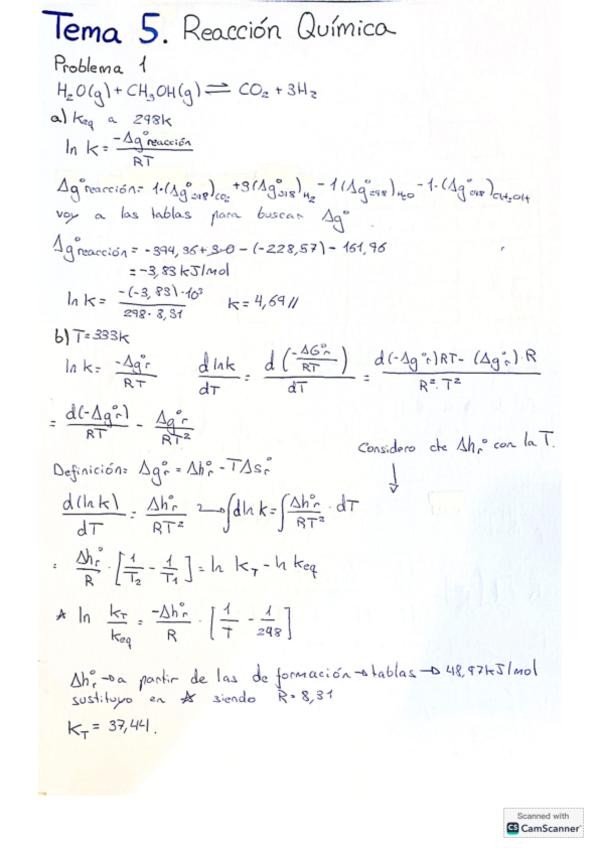 Tema 5. Reacción Química
Problema 1
H₂O(g) + CH₃OH(g) ⇌ CO₂ + 3H₂
a) Keq a 298K
ln k = -Δg°reacción / RT
Δg°reacción = 1·(Δg°298)CO₂ + 3(Δg°298)H₂ - 1(Δg°298)H₂O - 1·(Δg°298)CH₃OH
voy a las tablas para buscar Δg°
Δg°reacción = -394,36 + 3·0 - (-228,57) - 161,96
= -3,83 kJ/mol
ln k = -(-3,83)·10³ / 298·8,31 k = 4,69 //
b) T = 333k
ln k = -Δg°r / RT d ln k / dT = d(-ΔG°r / RT) / dT = d(-Δg°r)RT - (Δg°r)·R / R²·T²
= d(-Δg°r) / RT - Δg°r / RT²
Considero cte Δhr° con la T.
Definición = Δg°r = Δh°r - TΔs°r
d(ln k) / dT = Δh°r / RT² → ∫d ln k = ∫ Δh°r / RT² · dT
= Δh°r / R · [1/T₂ - 1/T₁] = ln KT - ln Keq
★ ln kT / keq = -Δh°r / R · [1/T - 1/298]
Δh°r → a partir de las de formación → tablas → 48,97 kJ/mol
sustituyo en ★ siendo R = 8,31
KT = 37,441.
Scanned with
CS CamScanner